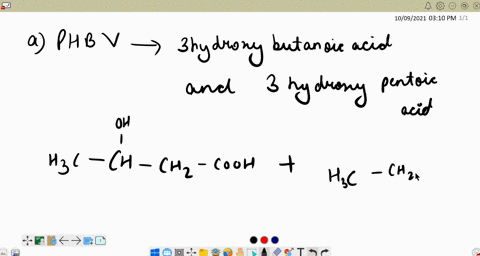 10/09/2021 03:10 PM 1/1
a) PHBV → 3 hydroxy butanoic acid
and 3 hydroxy pentoic
acid
OH
H3C - CH - CH2 - COOH + H3C - CH2